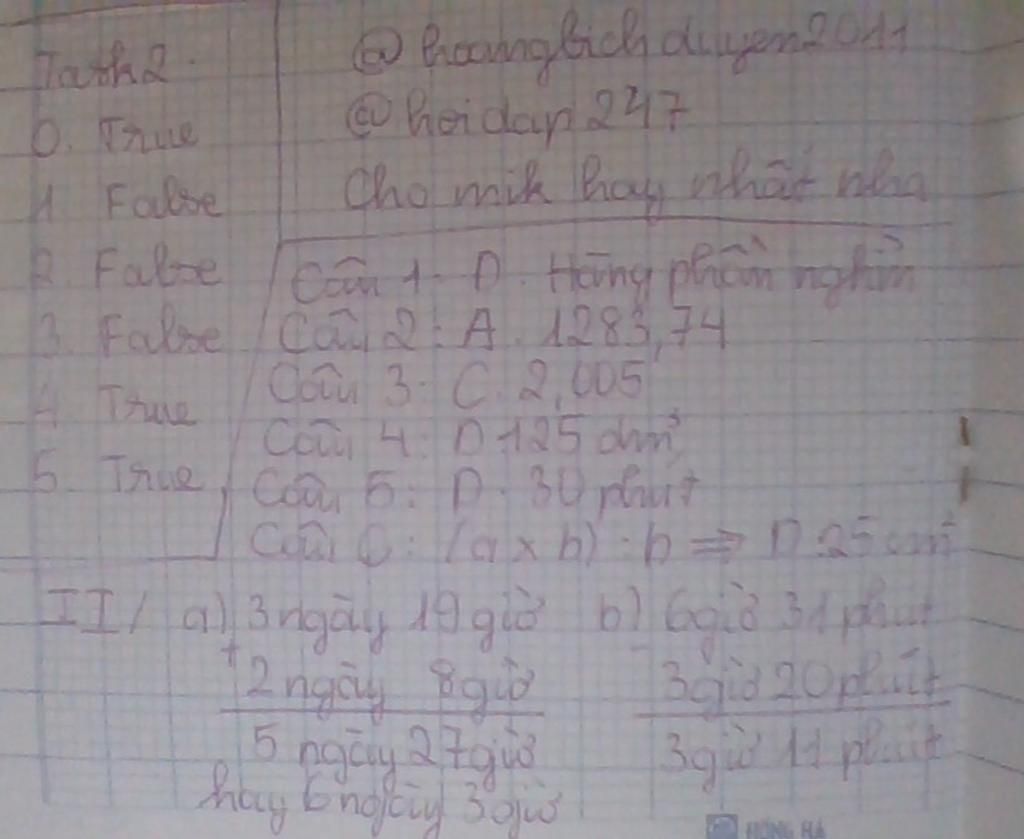 Task 2.
0. True
1 False
2. False
3. False
4. True
5. True
@ hoangbichduyen2011
@ hoidap247
Cho mik hay nhất nha
Câu 1: D. Hàng phần nghìn
Câu 2: A. 1283,74
Câu 3: C. 2,005
Câu 4: D. 125 dm³
Câu 5: D. 30 phút
Câu 6: (a x h) : b => D. 25 cm²
II/ a) 3 ngày 19 giờ b) 6 giờ 31 phút
+ 2 ngày 8 giờ - 3 giờ 20 phút
5 ngày 27 giờ 3 giờ 11 phút
hay 6 ngày 3 giờ
HỒNG HÀ